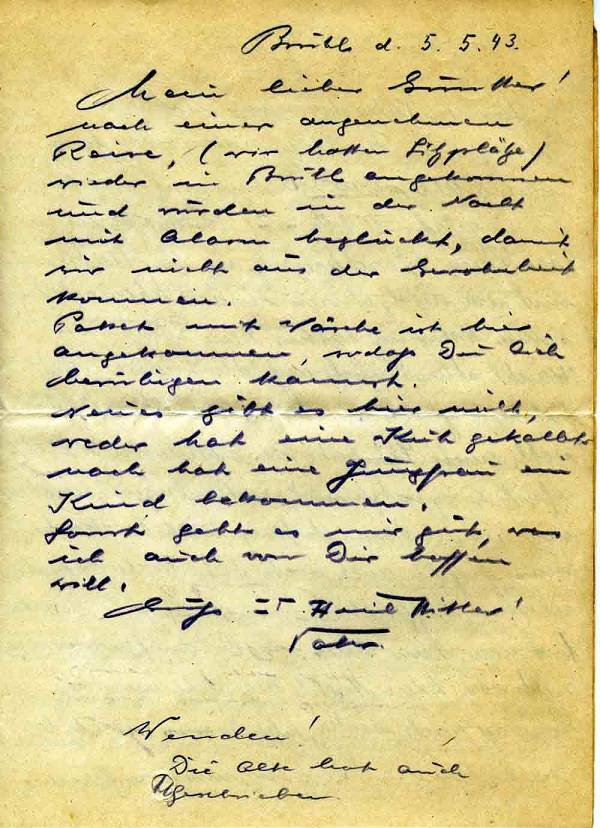 Brühl d. 5. 5. 43.
Mein lieber Günther!
nach einer angenehmen
Reise, (wir hatten Sitzplätze)
wieder in Brühl angekommen
und würden in der Nacht
mit Alarm beglückt, damit
wir nicht aus der Gewohnheit
kommen.
Paket mit Wäsche ist hier
angekommen, sodaß Du Dich
beruhigen kannst.
Neues gibt es hier nicht,
weder hat eine Kuh gekalbt
noch hat eine Jungfrau ein
Kind bekommen.
Sonst geht es mir gut, was
ich auch von Dir hoffen
will.
Heil Hitler!
Vater
Wenden!
Die Alte hat auch
geschrieben